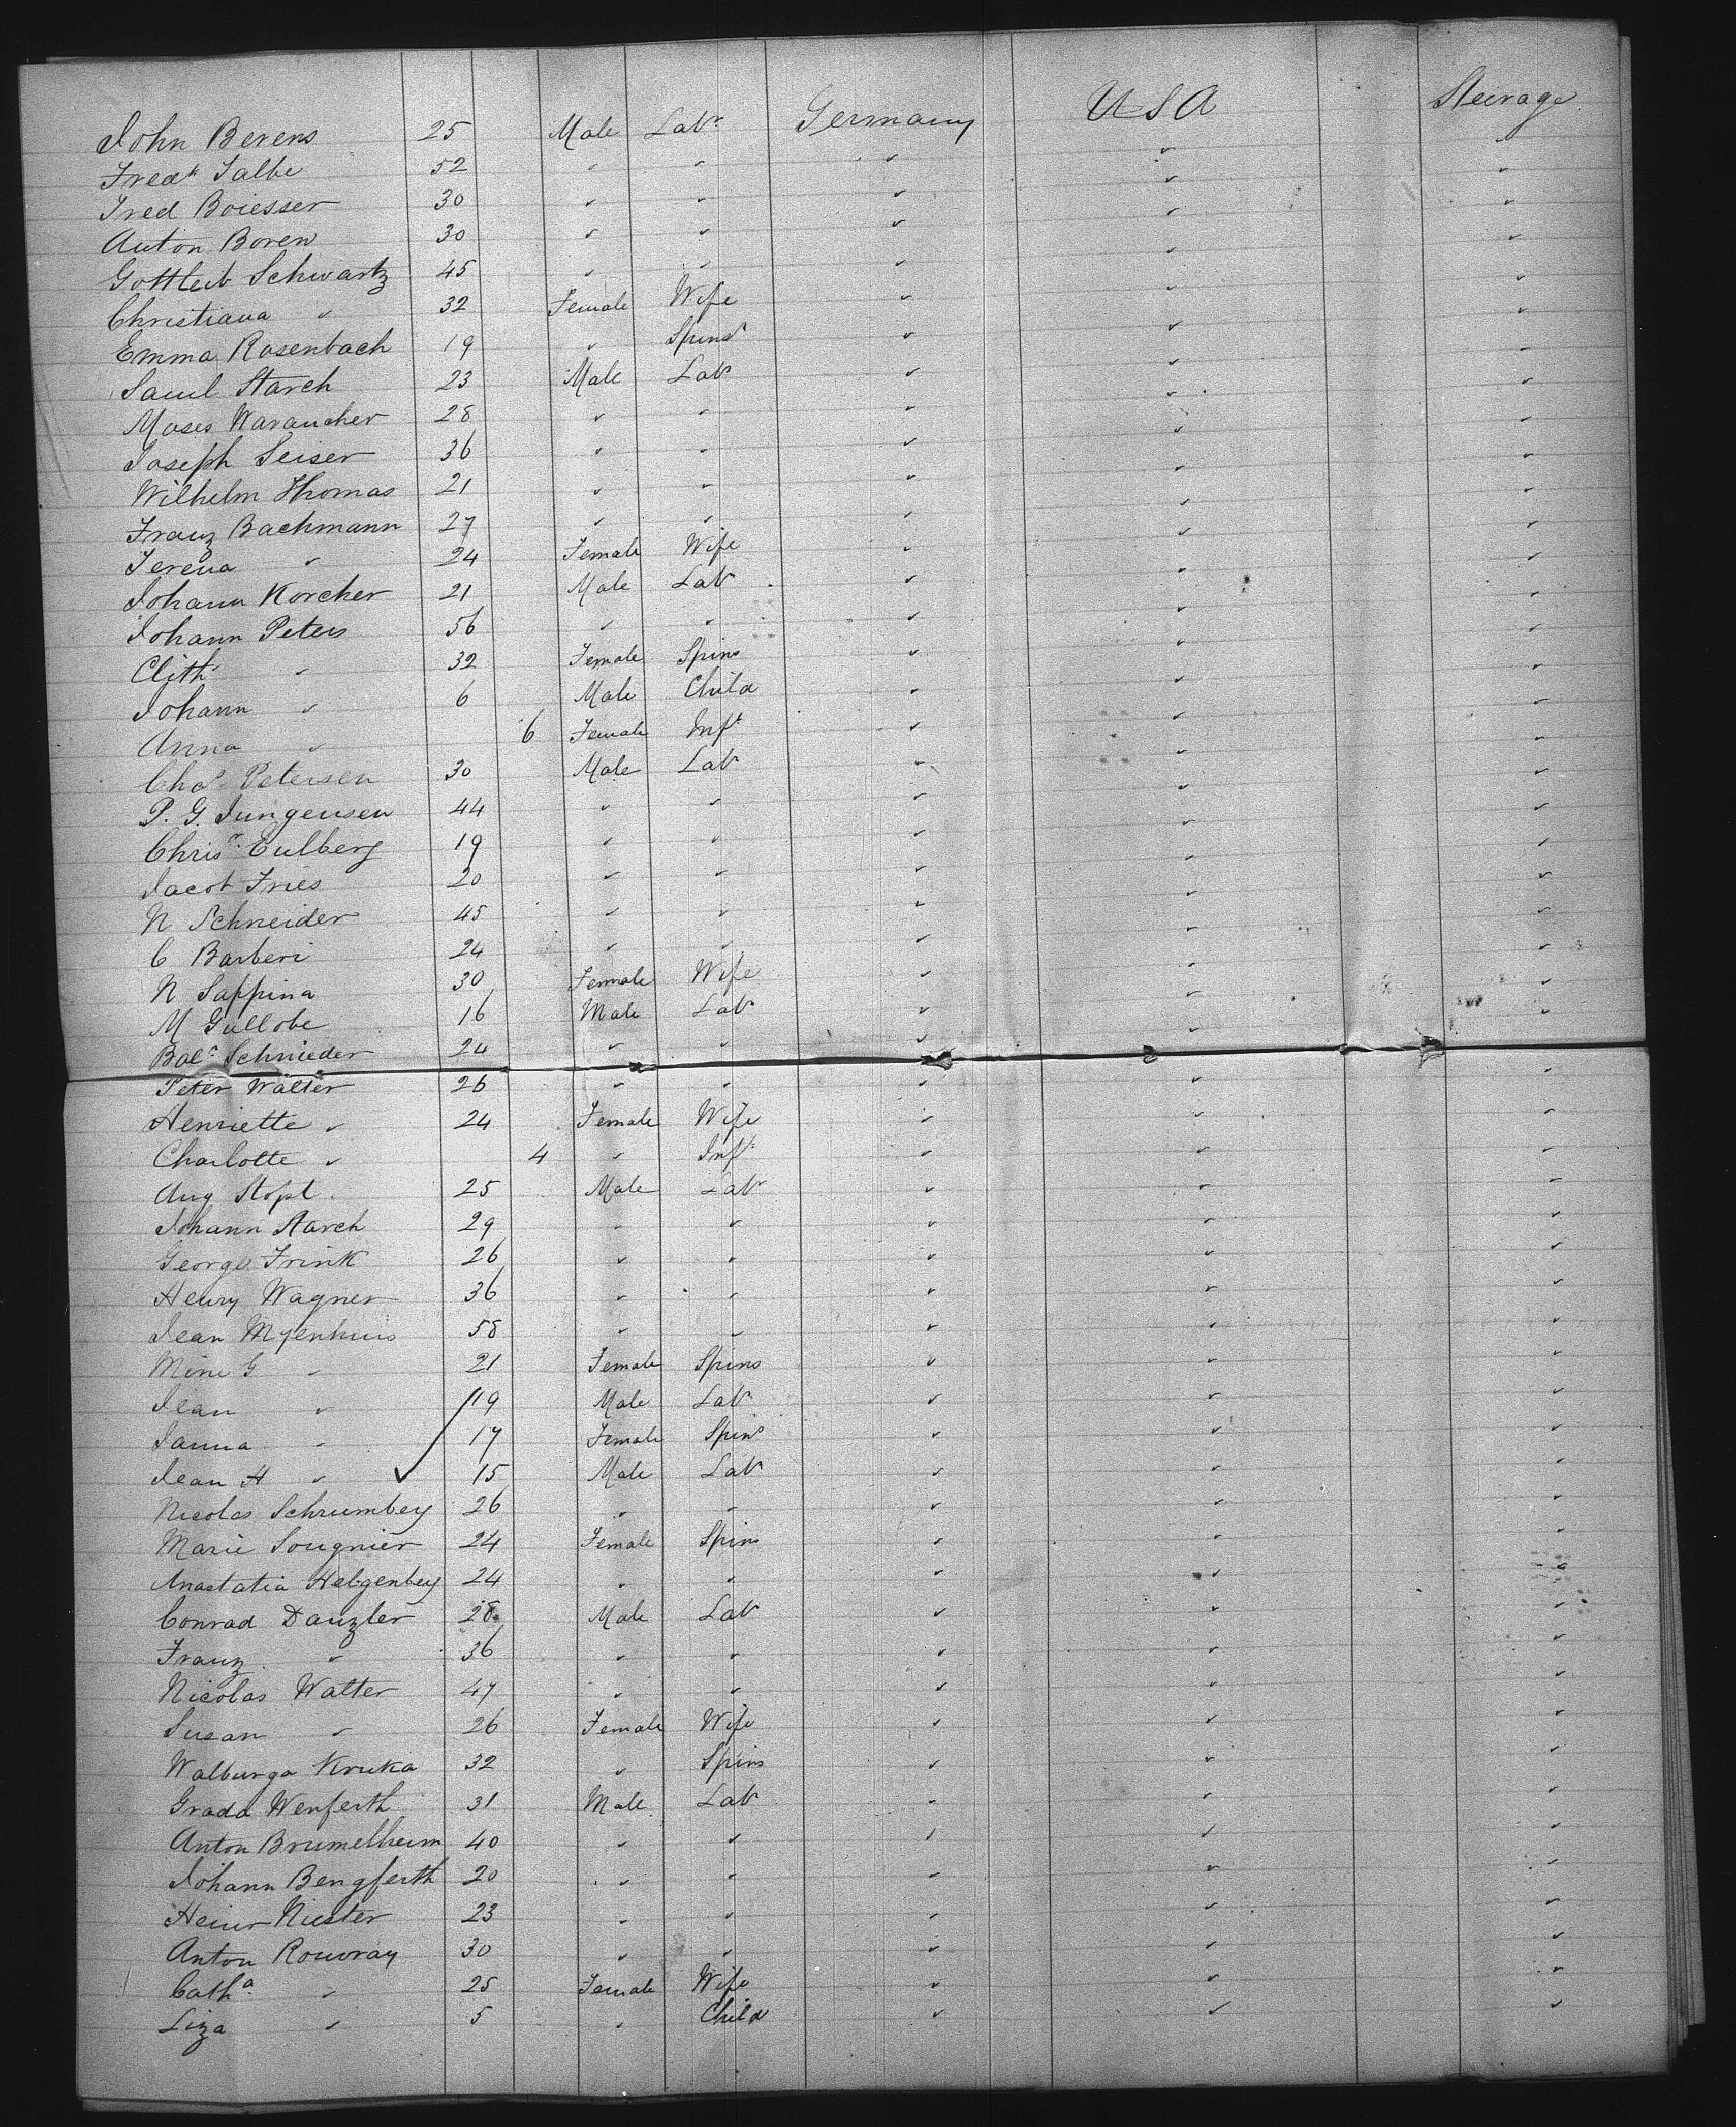 John Berens 25 Male Labr Germany USA Steerage
Fredk Salbe 52 " " " " "
Fred Boiesser 30 " " " " "
Anton Boren 30 " " " " "
Gottleib Schwartz 45 " " " " "
Christiana " 32 Female Wife " " "
Emma Rosenbach 19 " Spinsr " " "
Saml Starch 23 Male Labr " " "
Moses Waraucher 28 " " " " "
Joseph Seiser 36 " " " " "
Wilhelm Thomas 21 " " " " "
Franz Bachmann 27 " " " " "
Terena " 24 Female Wife " " "
Johann Korcher 21 Male Labr " " "
Johann Peters 56 " " " " "
Clith " 32 Female Spins " " "
Johann " 6 Male Child " " "
Anna " 6 Female Inft " " "
Chas Petersen 30 Male Labr " " "
P. G. Jungensen 44 " " " " "
Chrisr Eulberg 19 " " " " "
Jacob Fries 20 " " " " "
N Schneider 45 " " " " "
C Barberi 24 " " " " "
N Sappina 30 Female Wife " " "
M Gullobe 16 Male Labr " " "
Schnieder 24 " " " " "
Peter Walter 26 " " " " "
Henriette " 24 Female Wife " " "
Charlotte " 4 " Inft " " "
Aug Stopt 25 Male Labr " " "
Johann Starch 29 " " " " "
George Frink 26 " " " " "
Henry Wagner 36 " " " " "
Jean Myenhuis 58 " " " " "
Mine G " 21 Female Spins " " "
Jean " 19 Male Labr " " "
Janna " 17 Female Spins " " "
Jean H " 15 Male Labr " " "
Nicolas Schrumbey 26 " " " " "
Marie Sougnier 24 Female Spins " " "
Anastatia Helgenbey 24 " " " " "
Conrad Danzler 28 Male Labr " " "
Franz " 36 " " " " "
Nicolas Walter 47 " " " " "
Susan " 26 Female Wife " " "
Walburga Kruka 32 " Spins " " "
Grada Wenferth 31 Male Labr " " "
Anton Brumelheim 40 " " " " "
Johann Bengferth 20 " " " " "
Heinr Niester 23 " " " " "
Anton Rouvray 30 " " " " "
Catha " 25 Female Wife " " "
Liza " 5 " Child " " "